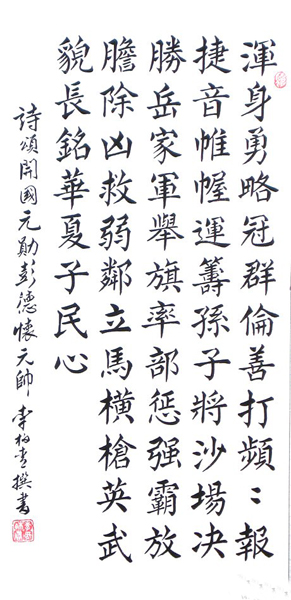 渾身勇略冠群倫善打頻〻報
捷音帷幄運籌孫子將沙場决
勝岳家軍舉旗率部惩强霸放
膽除凶救弱鄰立馬橫槍英武
貌長銘華夏子民心
詩頌開國元勋彭德懷元帥 李柏青撰書